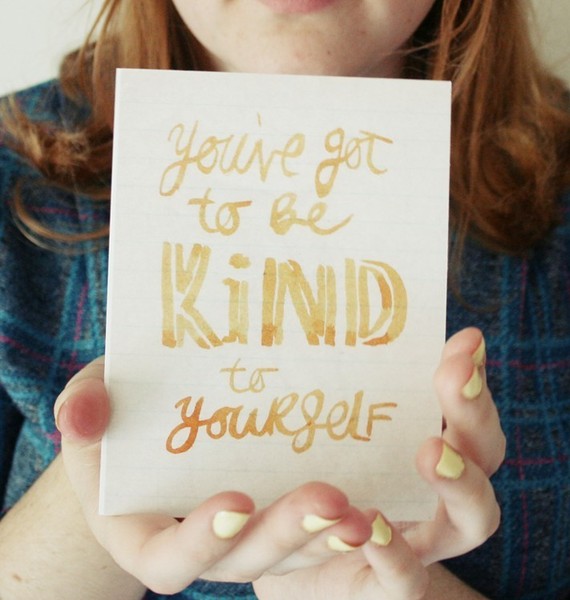 You've got
to Be
KiND
to
yourself